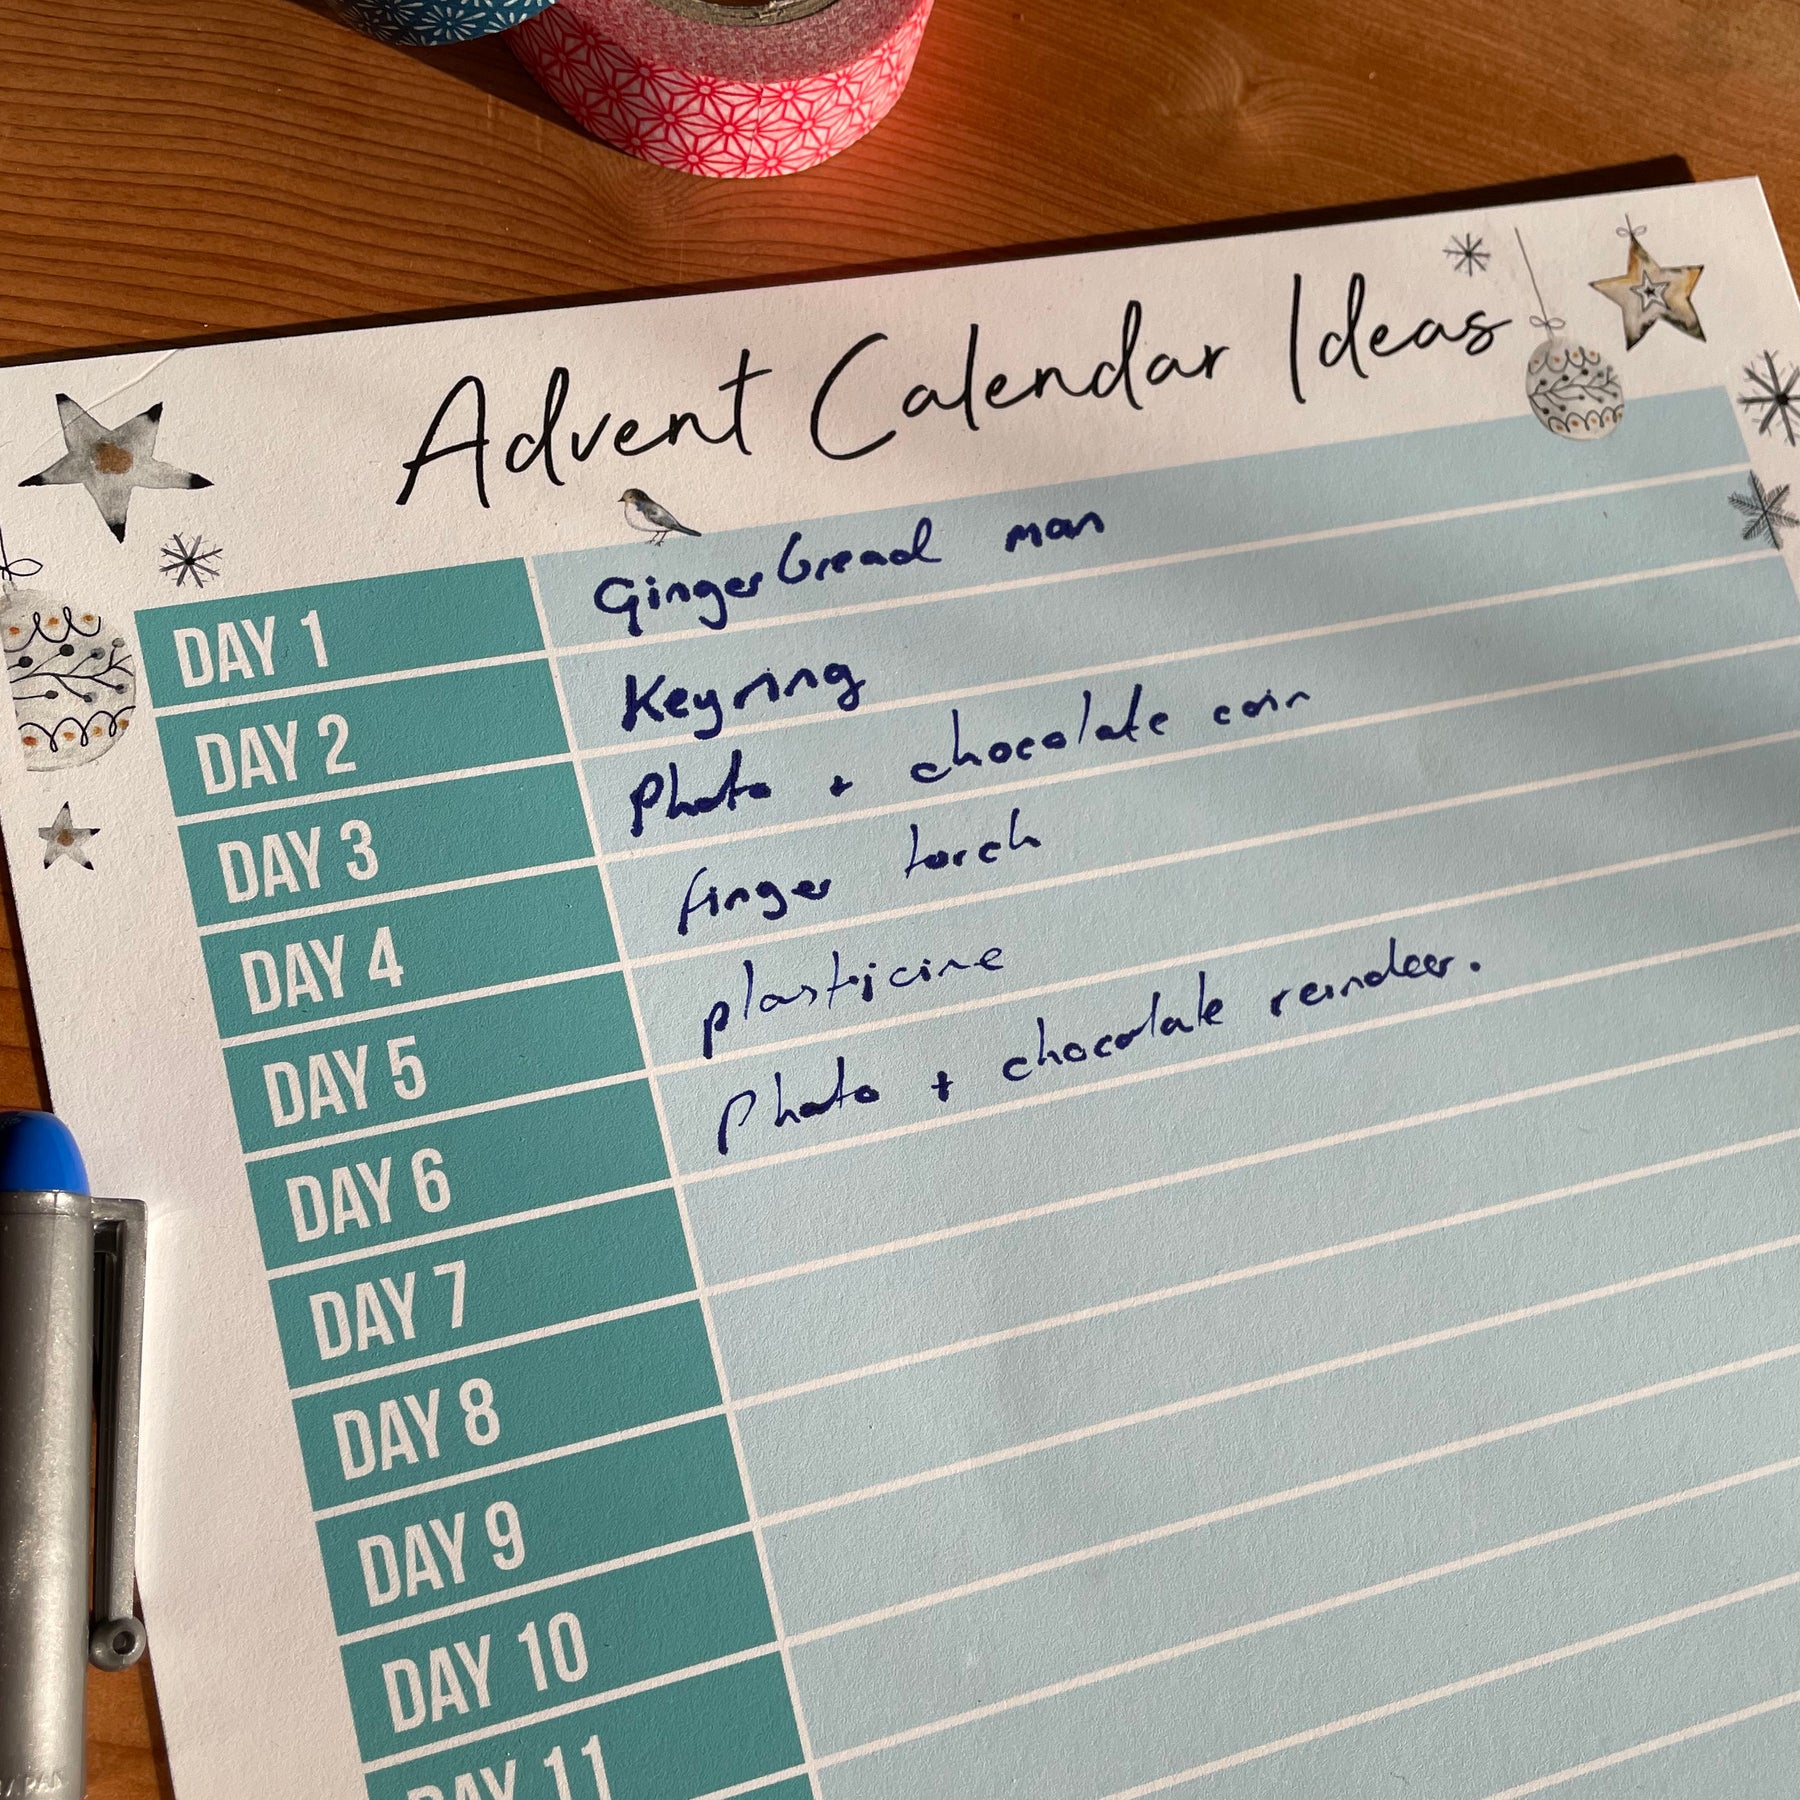 Advent Calendar Ideas
DAY 1 Gingerbread man
DAY 2 Keyring
DAY 3 Photo + chocolate coin
DAY 4 finger torch
DAY 5 plasticine
DAY 6 Photo + chocolate reindeer.
DAY 7
DAY 8
DAY 9
DAY 10
DAY 11